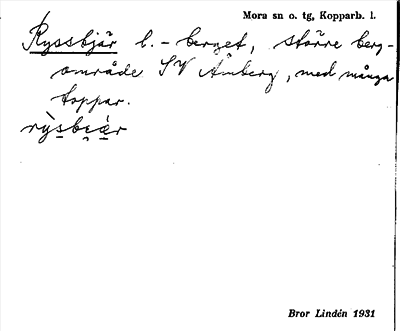 Mora sn o. tg, Kopparb. l.
Ryssbjär l. -berget, större berg-
område SV Åmberg, med många
toppar.
rỳsbɛ̀r
Bror Lindén 1931